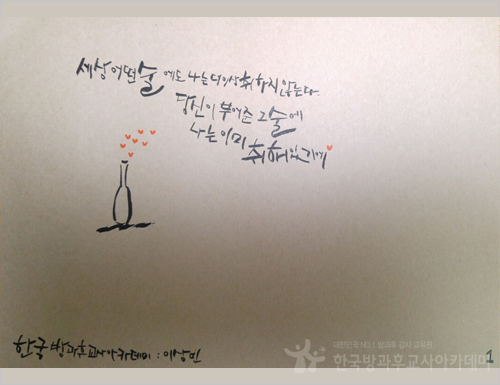 세상 어떤 술에도 나는 더이상 취하지 않는다.
당신이 부어준 그 술에
나는 이미 취해있기에
한국방과후교사아카데미 : 이상민
대한민국 NO.1 방과후 강사 교육원
한국방과후교사아카데미
1